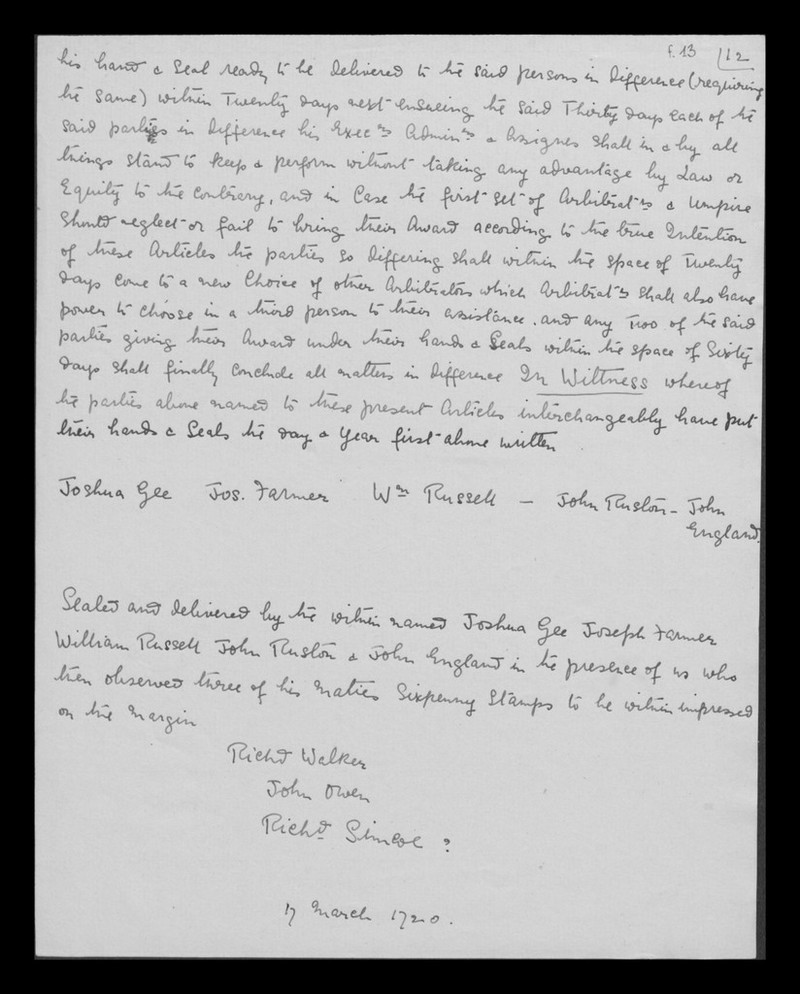 f. 13 12
his hand & Seal ready to be delivered to the said persons in Difference (requiring
the same) within Twenty days next ensueing the said Thirty days each of the
said parties in difference his Execrs Adminrs & Assignes shall in & by all
things stand to keep & perform without taking any advantage by Law or
Equity to the contrary, and in Case the first Set of Arbitratrs & Umpire
should neglect or fail to bring their Award according to the true Intention
of these Articles the parties so differing shall within the space of Twenty
days come to a new Choice of other Arbitrators which Arbitratrs shall also have
power to choose in a third person to their assistance. and any Two of the said
parties giving their Award under their hands & Seals within the space of Sixty
days shall finally conclude all matters in difference In Wittness whereof
the parties above named to these present Articles interchangeably have put
their hands & Seals the day & Year first above written
Joshua Gee Jos. Farmer Wm Russell – John Ruston – John
England.
Sealed and delivered by the within named Joshua Gee Joseph Farmer
William Russell John Ruston & John England in the presence of us who
then observed three of his Maties Sixpenny Stamps to be within impressed
on the Margin
Richd Walker
John Owen
Richd Simcoe ?
17 March 1720.